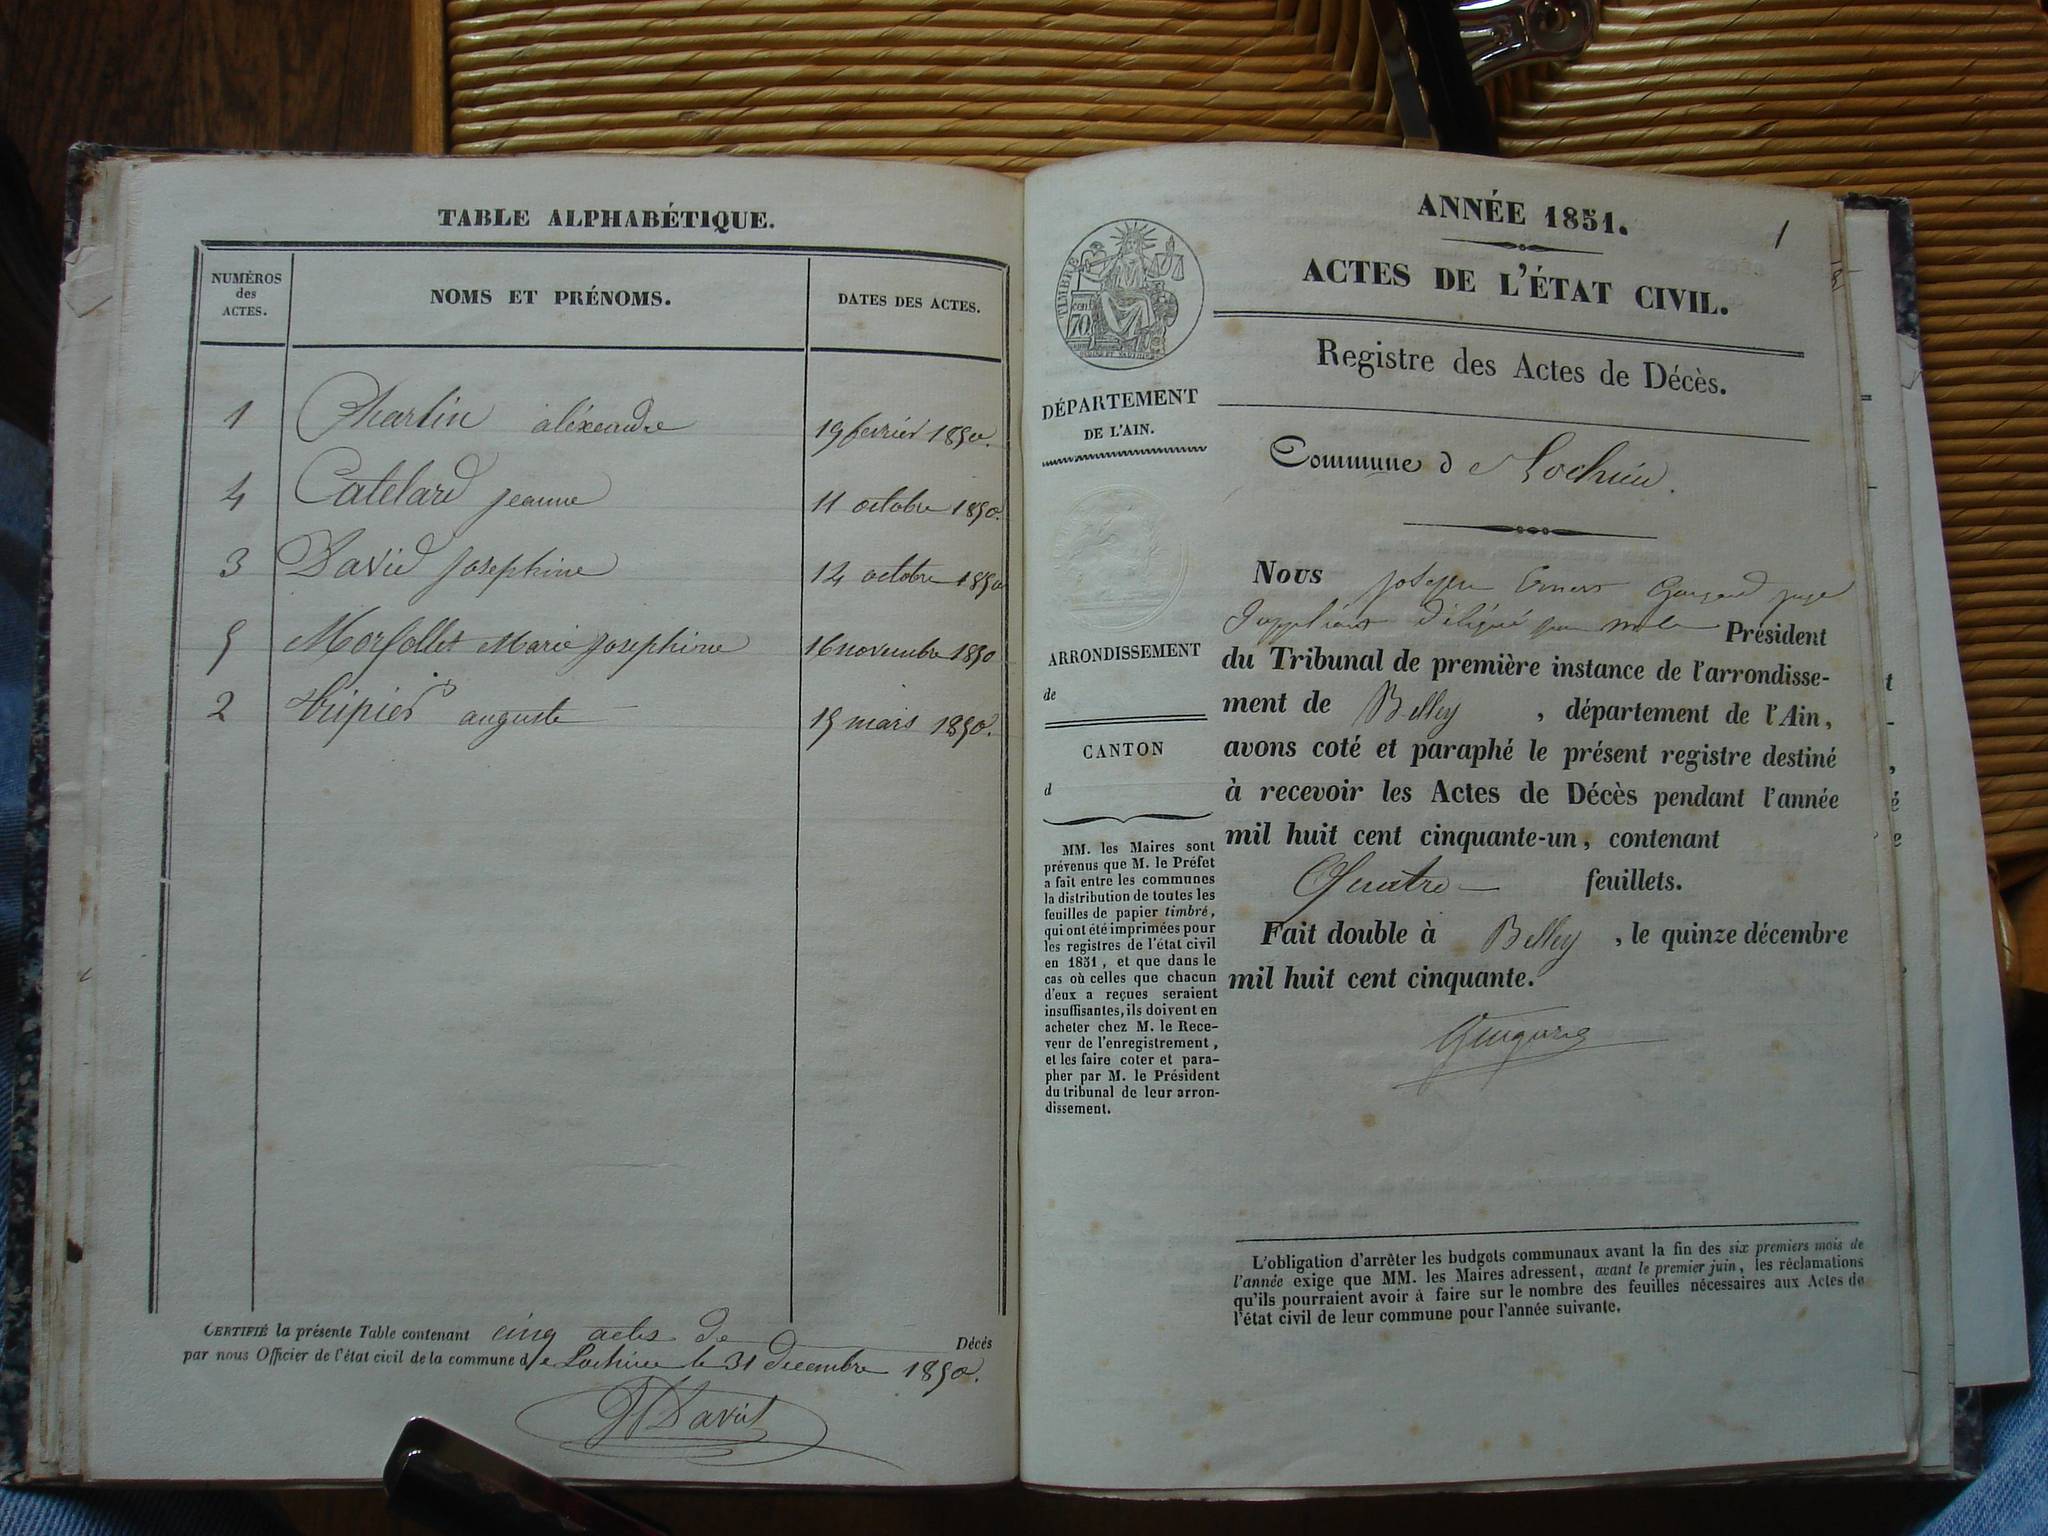 TABLE ALPHABÉTIQUE.
NUMÉROS
des
ACTES.
NOMS ET PRÉNOMS.
DATES DES ACTES.
1 Charlin aléxandre 19 février 1850.
4 Catelard jeanne 11 octobre 1850.
3 David Josephine 12 octobre 1850
5 Morfollet Marie Josephine 16 novembre 1850
2 auguste 15 mars 1850.
CERTIFIÉ la présente Table contenant cinq actes de Décés
par nous Officier de l'état civil de la commune de Lochieu le 31 décembre 1850.
David
ANNÉE 1851.
1
ACTES DE L'ÉTAT CIVIL.
TIMBRE
70
Registre des Actes de Décès.
DÉPARTEMENT
DE L'AIN.
Commune de Lochieu.
ARRONDISSEMENT
de
CANTON
d
MM. les Maires sont
prévenus que M. le Préfet
a fait entre les communes
la distribution de toutes les
feuilles de papier timbré,
qui ont été imprimées pour
les registres de l'état civil
en 1851, et que dans le
cas où celles que chacun
d'eux a reçues seraient
insuffisantes, ils doivent en
acheter chez M. le Rece-
veur de l'enregistrement,
et les faire coter et para-
pher par M. le Président
du tribunal de leur arron-
dissement.
Nous joseph juge
suppléant délégué par Président
du Tribunal de première instance de l'arrondisse-
ment de Belley, département de l'Ain,
avons coté et paraphé le présent registre destiné
à recevoir les Actes de Décès pendant l'année
mil huit cent cinquante-un, contenant
Quatre feuillets.
Fait double à Belley, le quinze décembre
mil huit cent cinquante.
L'obligation d'arrêter les budgets communaux avant la fin des six premiers mois de
l'année exige que MM. les Maires adressent, avant le premier juin, les réclamations
qu'ils pourraient avoir à faire sur le nombre des feuilles nécessaires aux Actes de
l'état civil de leur commune pour l'année suivante.